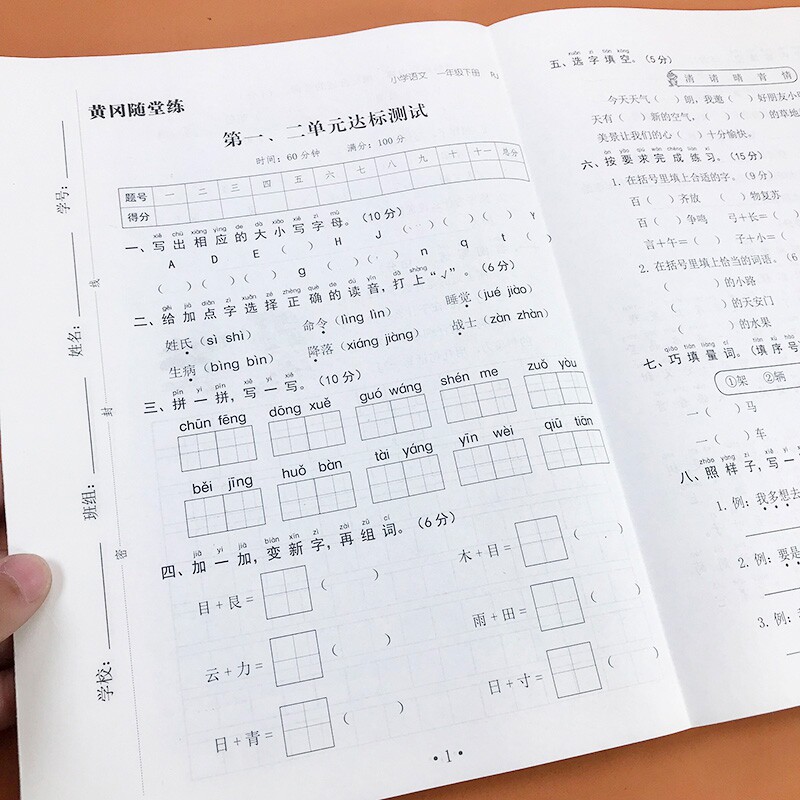 小学语文 一年级下册 RJ
黄冈随堂练
第一、二单元达标测试
时间：60分钟 满分：100分
题号 一 二 三 四 五 六 七 八 九 十 十一 总分
得分
xiě chū xiāng yìng de dà xiǎo xiě zì mǔ
一、写出相应的大小写字母。（10分）
A D E （ ） H J （ ） （ ） （ ） Y
（ ） （ ） （ ） g （ ） （ ） n q t （ ）
gěi jiā diǎn zì xuǎn zé zhèng què de dú yīn dǎ shàng
二、给加点字选择正确的读音，打上“√”。（6分）
姓氏（sì shì） 命令（lìng lìn） 睡觉（jué jiào）
生病（bìng bìn） 降落（xiáng jiàng） 战士（zàn zhàn）
pīn yi pīn xiě yi xiě
三、拼一拼，写一写。（10分）
chūn fēng dōng xuě guó wáng shén me zuǒ yòu
běi jīng huǒ bàn tài yáng yīn wèi qiū tiān
jiā yi jiā biàn xīn zì zài zǔ cí
四、加一加，变新字，再组词。（6分）
目+艮= （ ） 木+目= （ ）
云+力= （ ） 雨+田= （ ）
日+青= （ ） 日+寸= （ ）
·1·
学校：
班组：
姓名：
学号：
密
封
线
xuǎn zì tián kòng
五、选字填空。（5分）
清 请 晴 青 情
今天天气（ ）朗，我邀（ ）好朋友小
天有（ ）新的空气，（ ）（ ）的草地
美景让我们的心（ ）十分愉快。
àn yāo qiú wán chéng liàn xí
六、按要求完成练习。（15分）
1. 在括号里填上合适的字。（9分）
百（ ）齐放 （ ）物复苏
百（ ）争鸣 弓+长=（
言+午=（ ） 子+小=（
2. 在括号里填上恰当的词语。（6
（ ）的小路
（ ）的天安门
（ ）的水果
qiǎo tián liàng cí tián xù hào
七、巧填量词。（填序号
①架 ②辆
一（ ）马
一（ ）车
zhào yàng zi xiě yi
八、照样子，写一
1. 例：我多想去
2. 例：要是
3. 例：